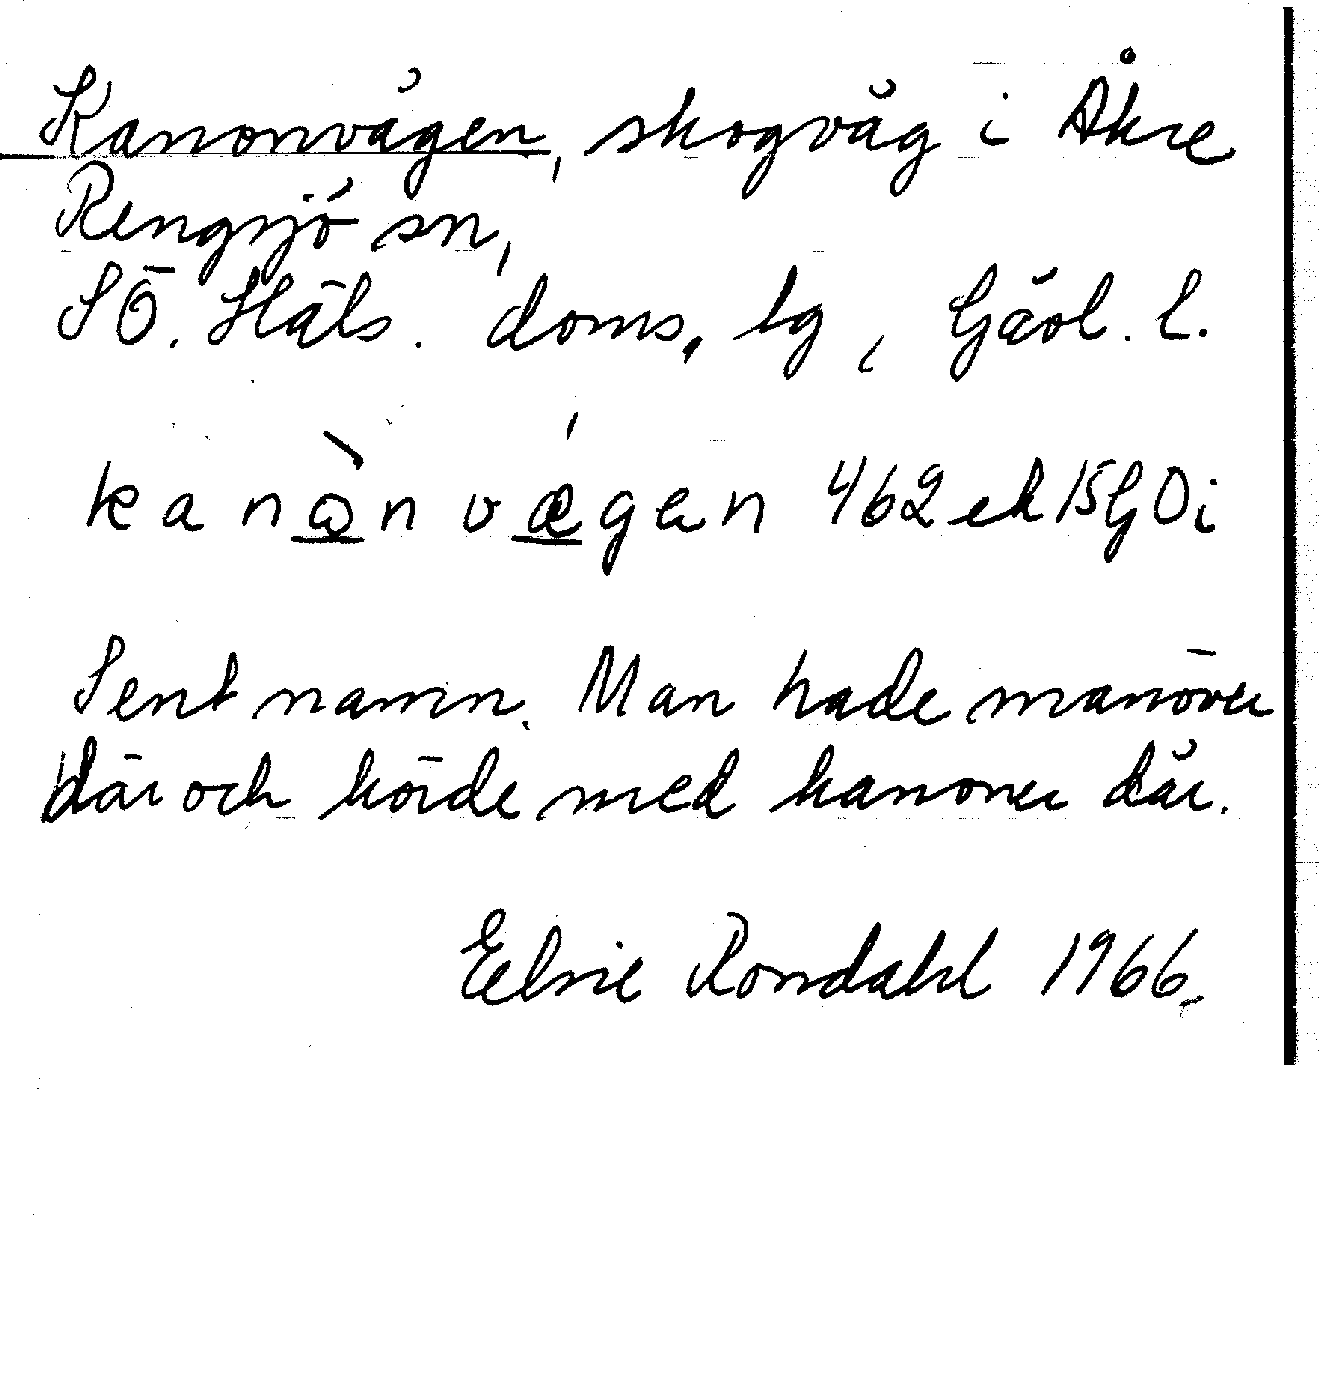 Kanonvägen, skogväg i Åkre
Rengsjö sn,
SÖ. Häls. doms. tg, Gävl. l.
kanòn vǽgen 462 ek 15G0i
Sent namn. Man hade manöver
där och körde med kanoner där.
Elsie Rondahl 1966.